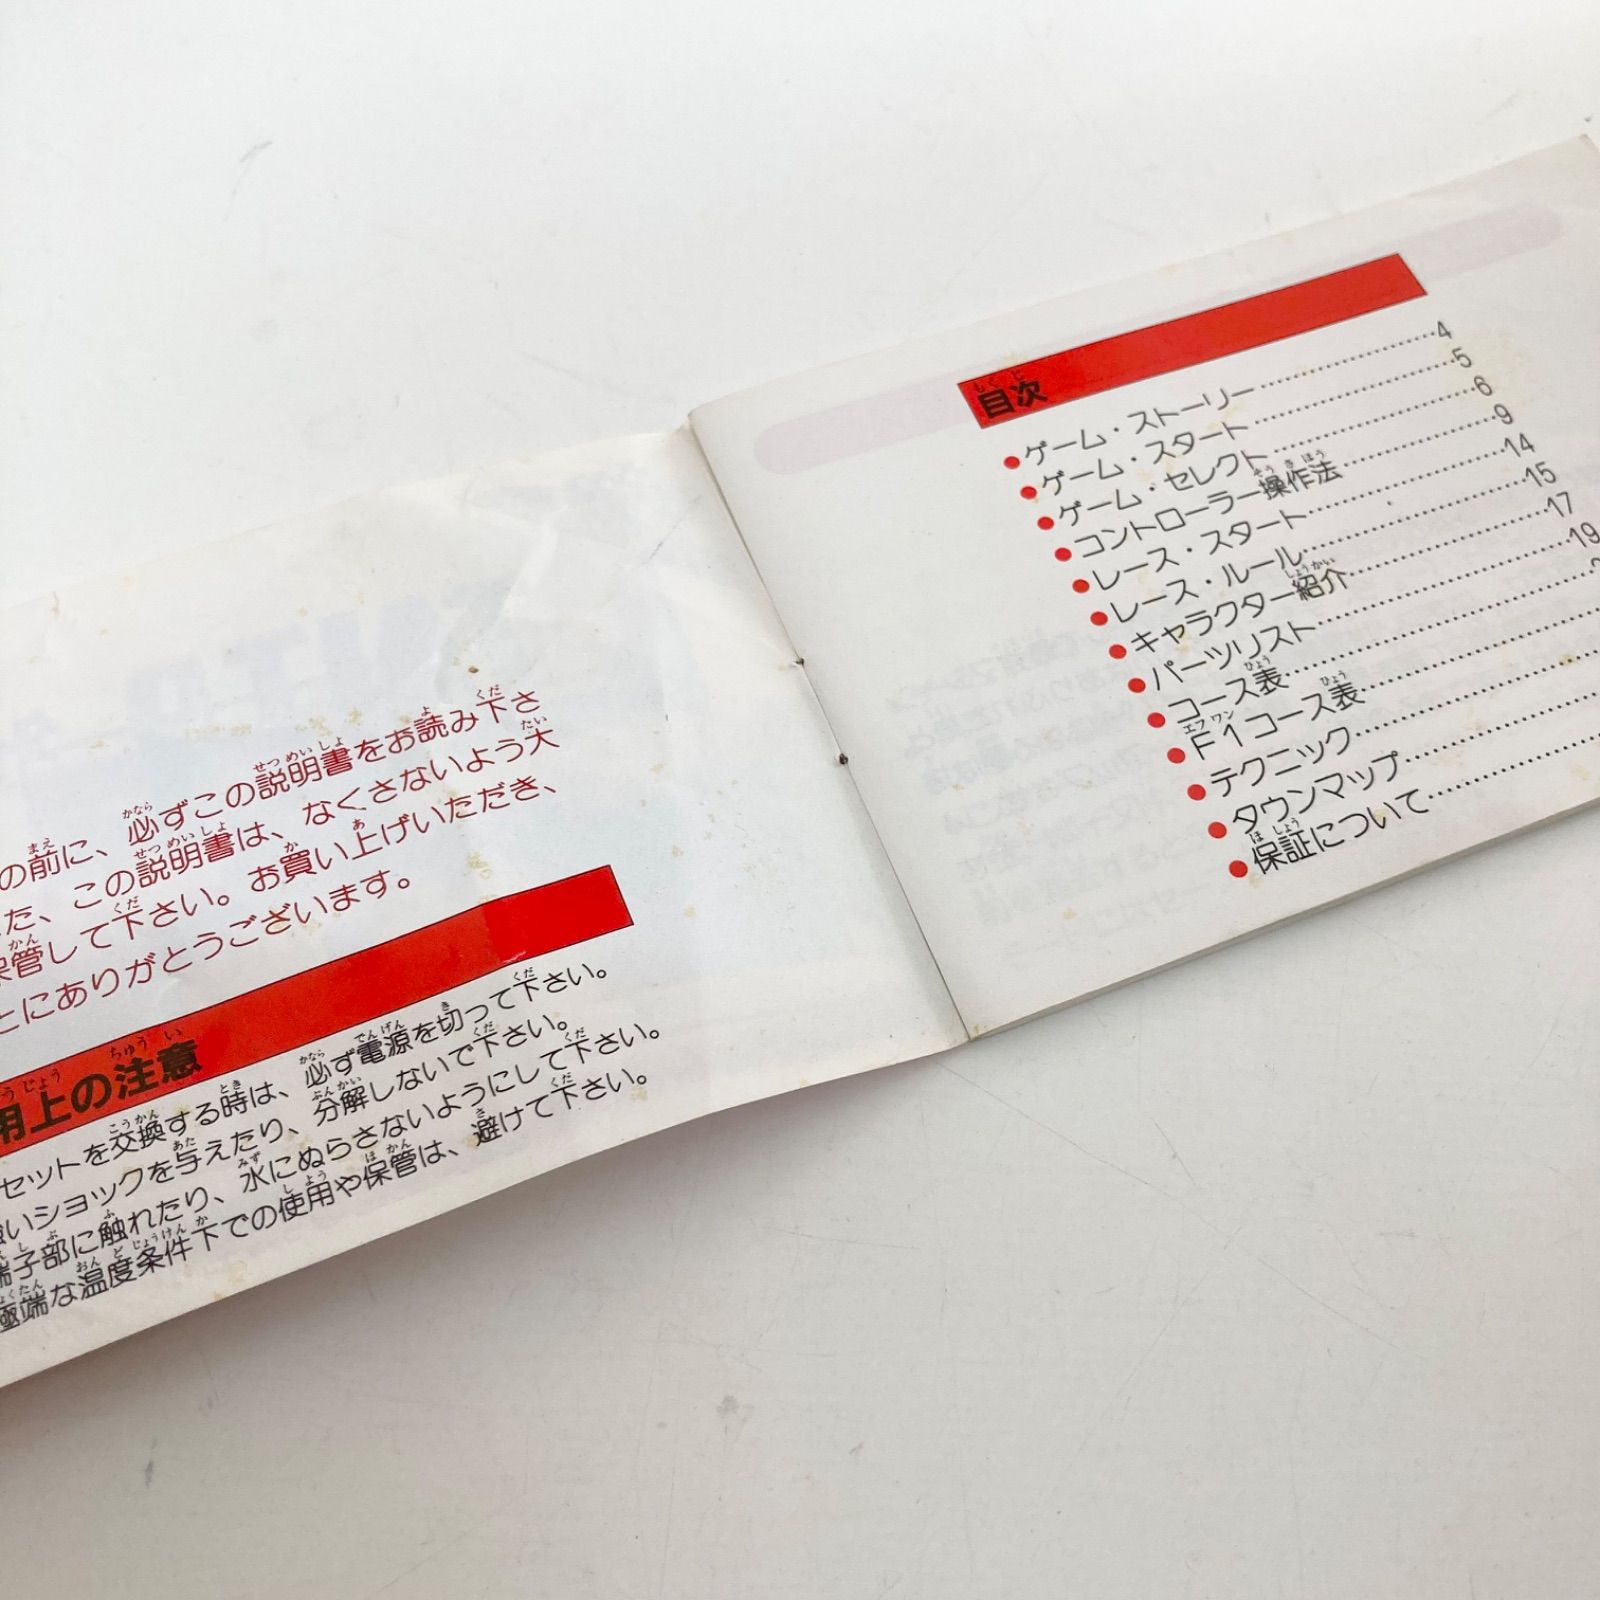 の前に、必ずこの説明書をお読み下さ
た、この説明書は、なくさないよう大
保管して下さい。お買い上げいただき、
とにありがとうございます。
用上の注意
セットを交換する時は、必ず電源を切って下さい。
いショックを与えたり、分解しないで下さい。
端子部に触れたり、水にぬらさないようにして下さい。
極端な温度条件下での使用や保管は、避けて下さい。
目次
●ゲーム・ストーリー……………4
●ゲーム・スタート……………5
●ゲーム・セレクト……………6
●コントローラー操作法……………9
●レース・スタート……………14
●レース・ルール……………15
●キャラクター紹介……………17
●パーツリスト……………19
●コース表……………
●F1コース表……………
●テクニック……………
●タウンマップ……………
●保証について……………